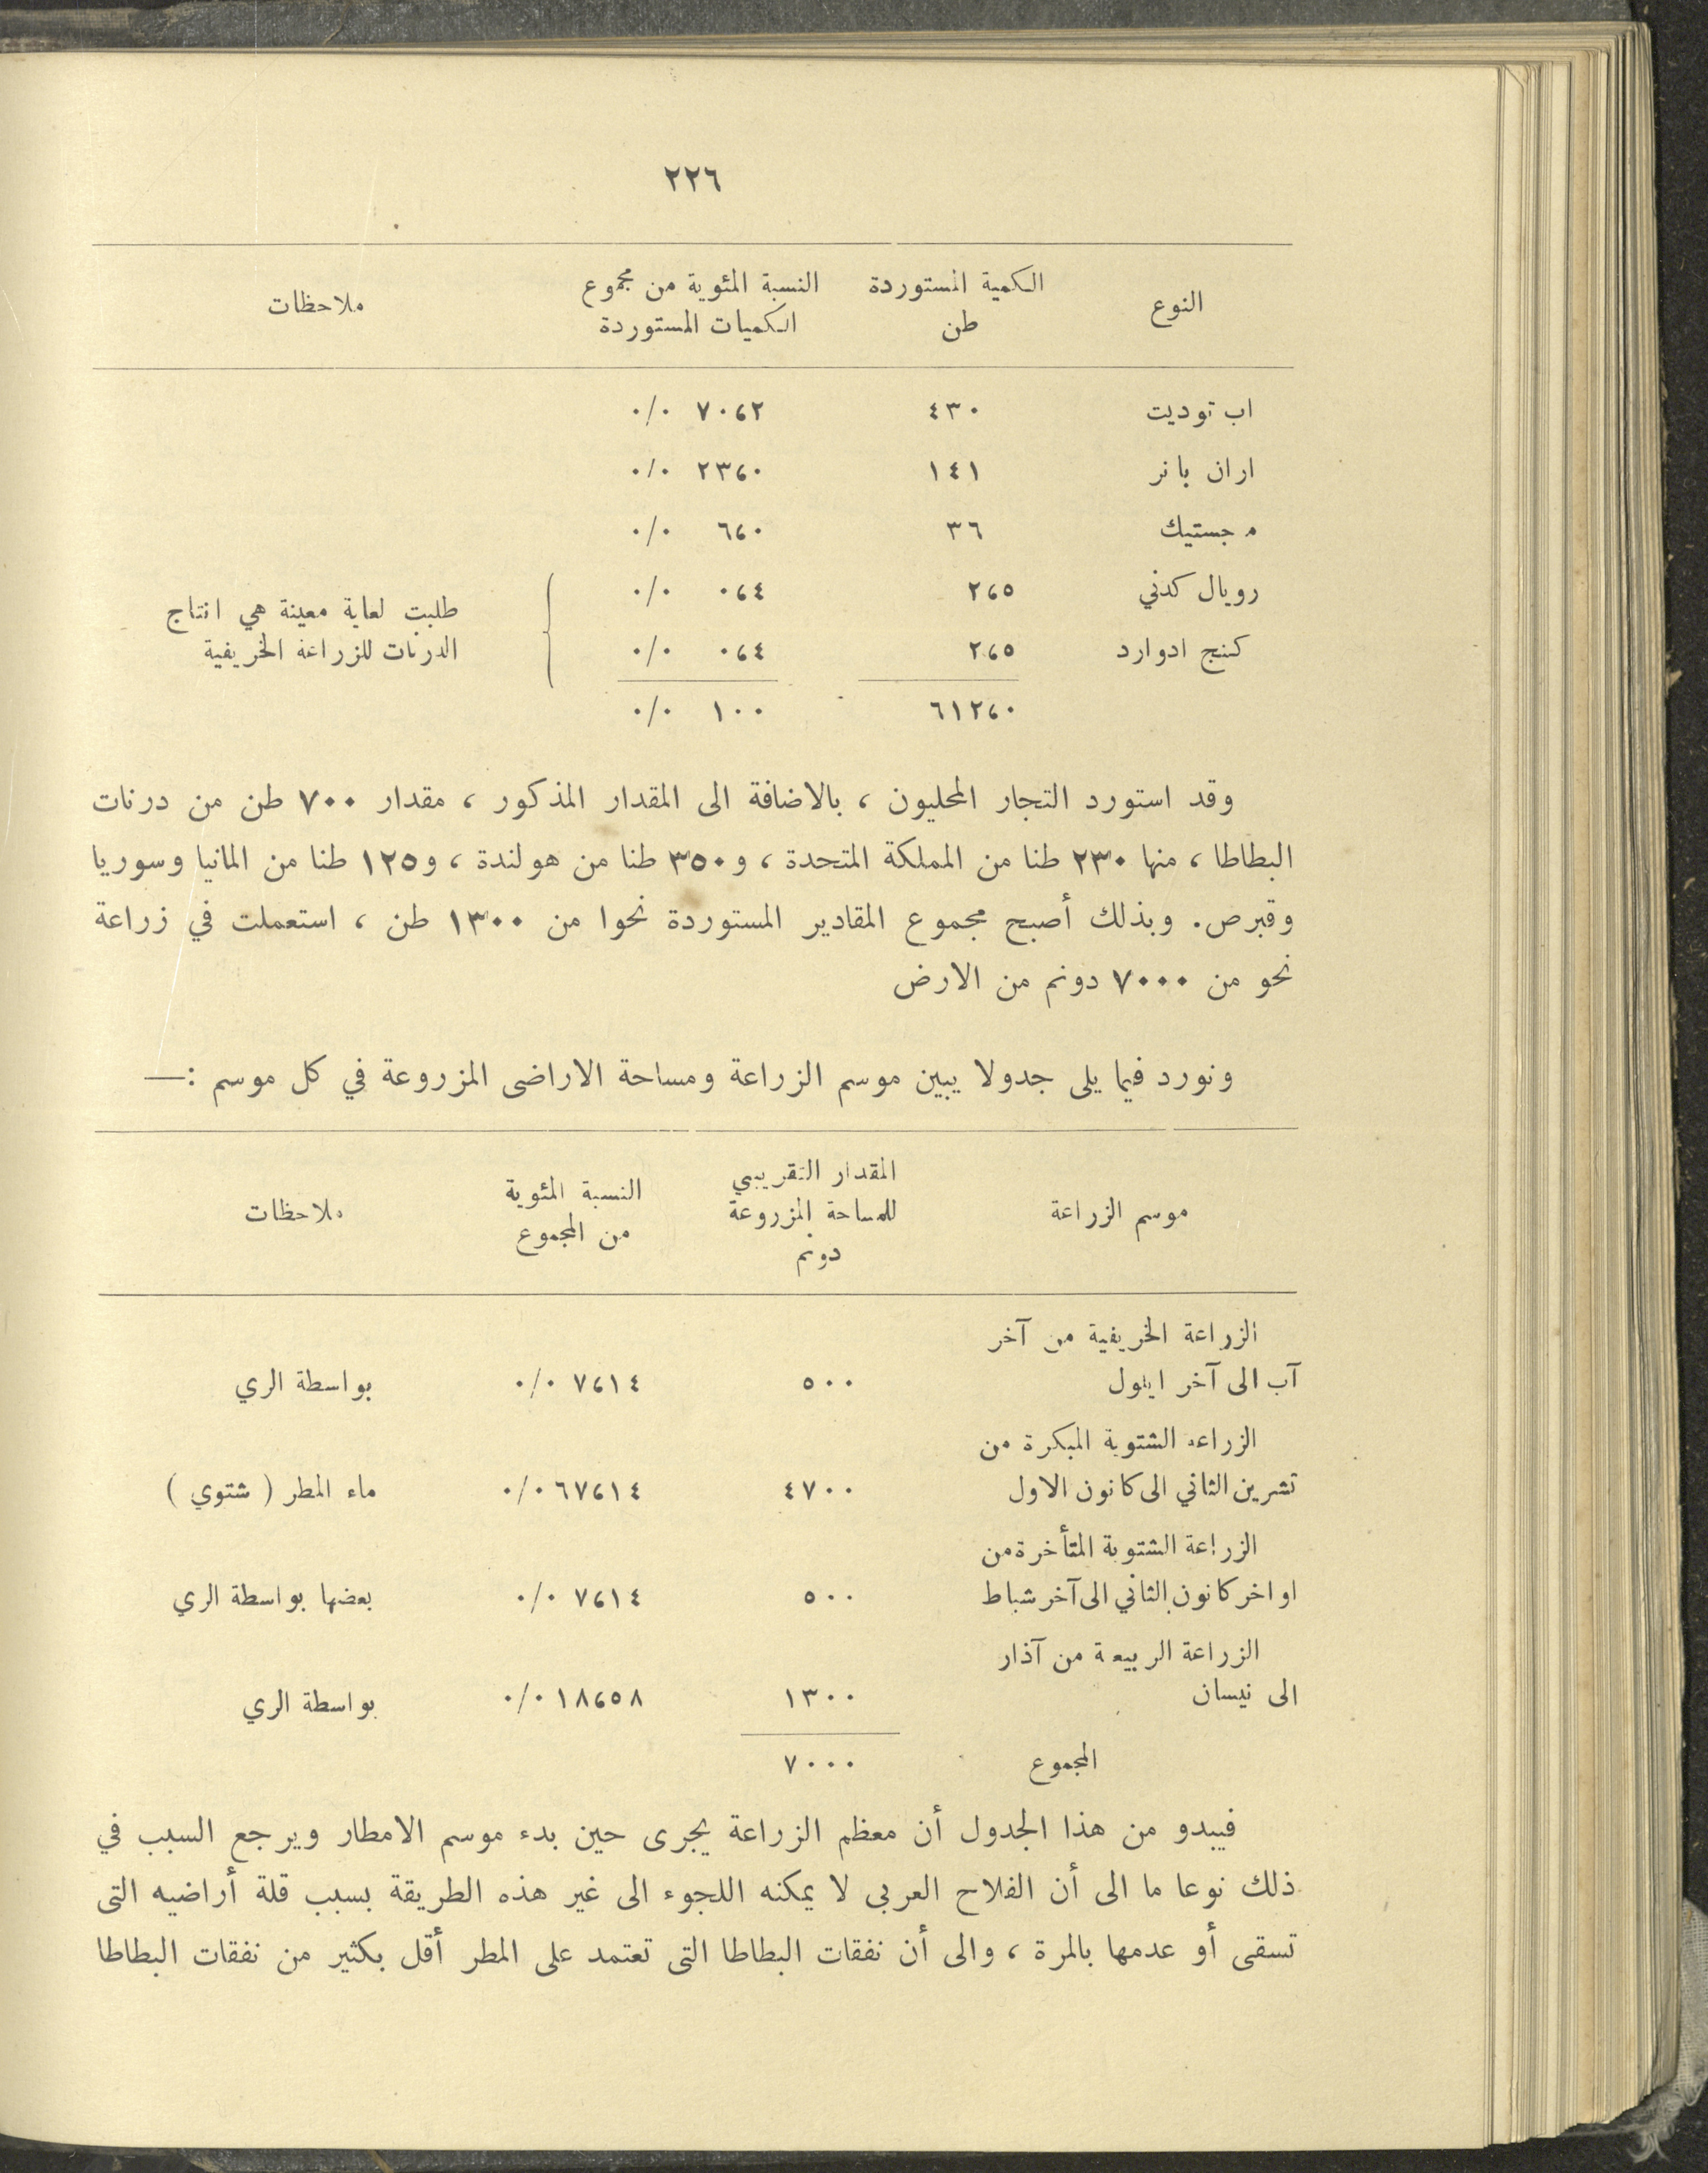 ٢٢٦
النوع الكمية المستوردة النسبة المئوية من مجموع ملاحظات
طن الكميات المستوردة
اب توديت ٤٣٠ ٧٠،٢ ٠/٠
اران بانر ١٤١ ٢٣،٠ ٠/٠
مجستيك ٣٦ ٦،٠ ٠/٠
رويال كدني ٢،٥ ٠،٤ ٠/٠ طلبت لغاية معينة هي انتاج
كنج ادوارد ٢،٥ ٠،٤ ٠/٠ الدرنات للزراعة الخريفية
٦١٢،٠ ١٠٠ ٠/٠
وقد استورد التجار المحليون ، بالاضافة الى المقدار المذكور ، مقدار ٧٠٠ طن من درنات
البطاطا ، منها ٢٣٠ طنا من المملكة المتحدة ، و٣٥٠ طنا من هولندة ، و١٢٥ طنا من المانيا وسوريا
وقبرص. وبذلك أصبح مجموع المقادير المستوردة نحوا من ١٣٠٠ طن ، استعملت في زراعة
نحو من ٧٠٠٠ دونم من الارض
ونورد فيما يلى جدولا يبين موسم الزراعة ومساحة الاراضى المزروعة في كل موسم :—
موسم الزراعة المقدار التقريبي للمساحة المزروعة دونم النسبة المئوية من المجموع ملاحظات
الزراعة الخريفية من آخر
آب الى آخر ايلول ٥٠٠ ٧،١٤ ٠/٠ بواسطة الري
الزراعة الشتوية المبكرة من
تشرين الثاني الى كانون الاول ٤٧٠٠ ٦٧،١٤ ٠/٠ ماء المطر ( شتوي )
الزراعة الشتوية المتأخرة من
اواخر كانون الثاني الى آخر شباط ٥٠٠ ٧،١٤ ٠/٠ بعضها بواسطة الري
الزراعة الربيعية من آذار
الى نيسان ١٣٠٠ ١٨،٥٨ ٠/٠ بواسطة الري
المجموع ٧٠٠٠
فيبدو من هذا الجدول أن معظم الزراعة يجرى حين بدء موسم الامطار ويرجع السبب في
ذلك نوعا ما الى أن الفلاح العربى لا يمكنه اللجوء الى غير هذه الطريقة بسبب قلة أراضيه التى
تسقى أو عدمها بالمرة ، والى أن نفقات البطاطا التى تعتمد على المطر أقل بكثير من نفقات البطاطا